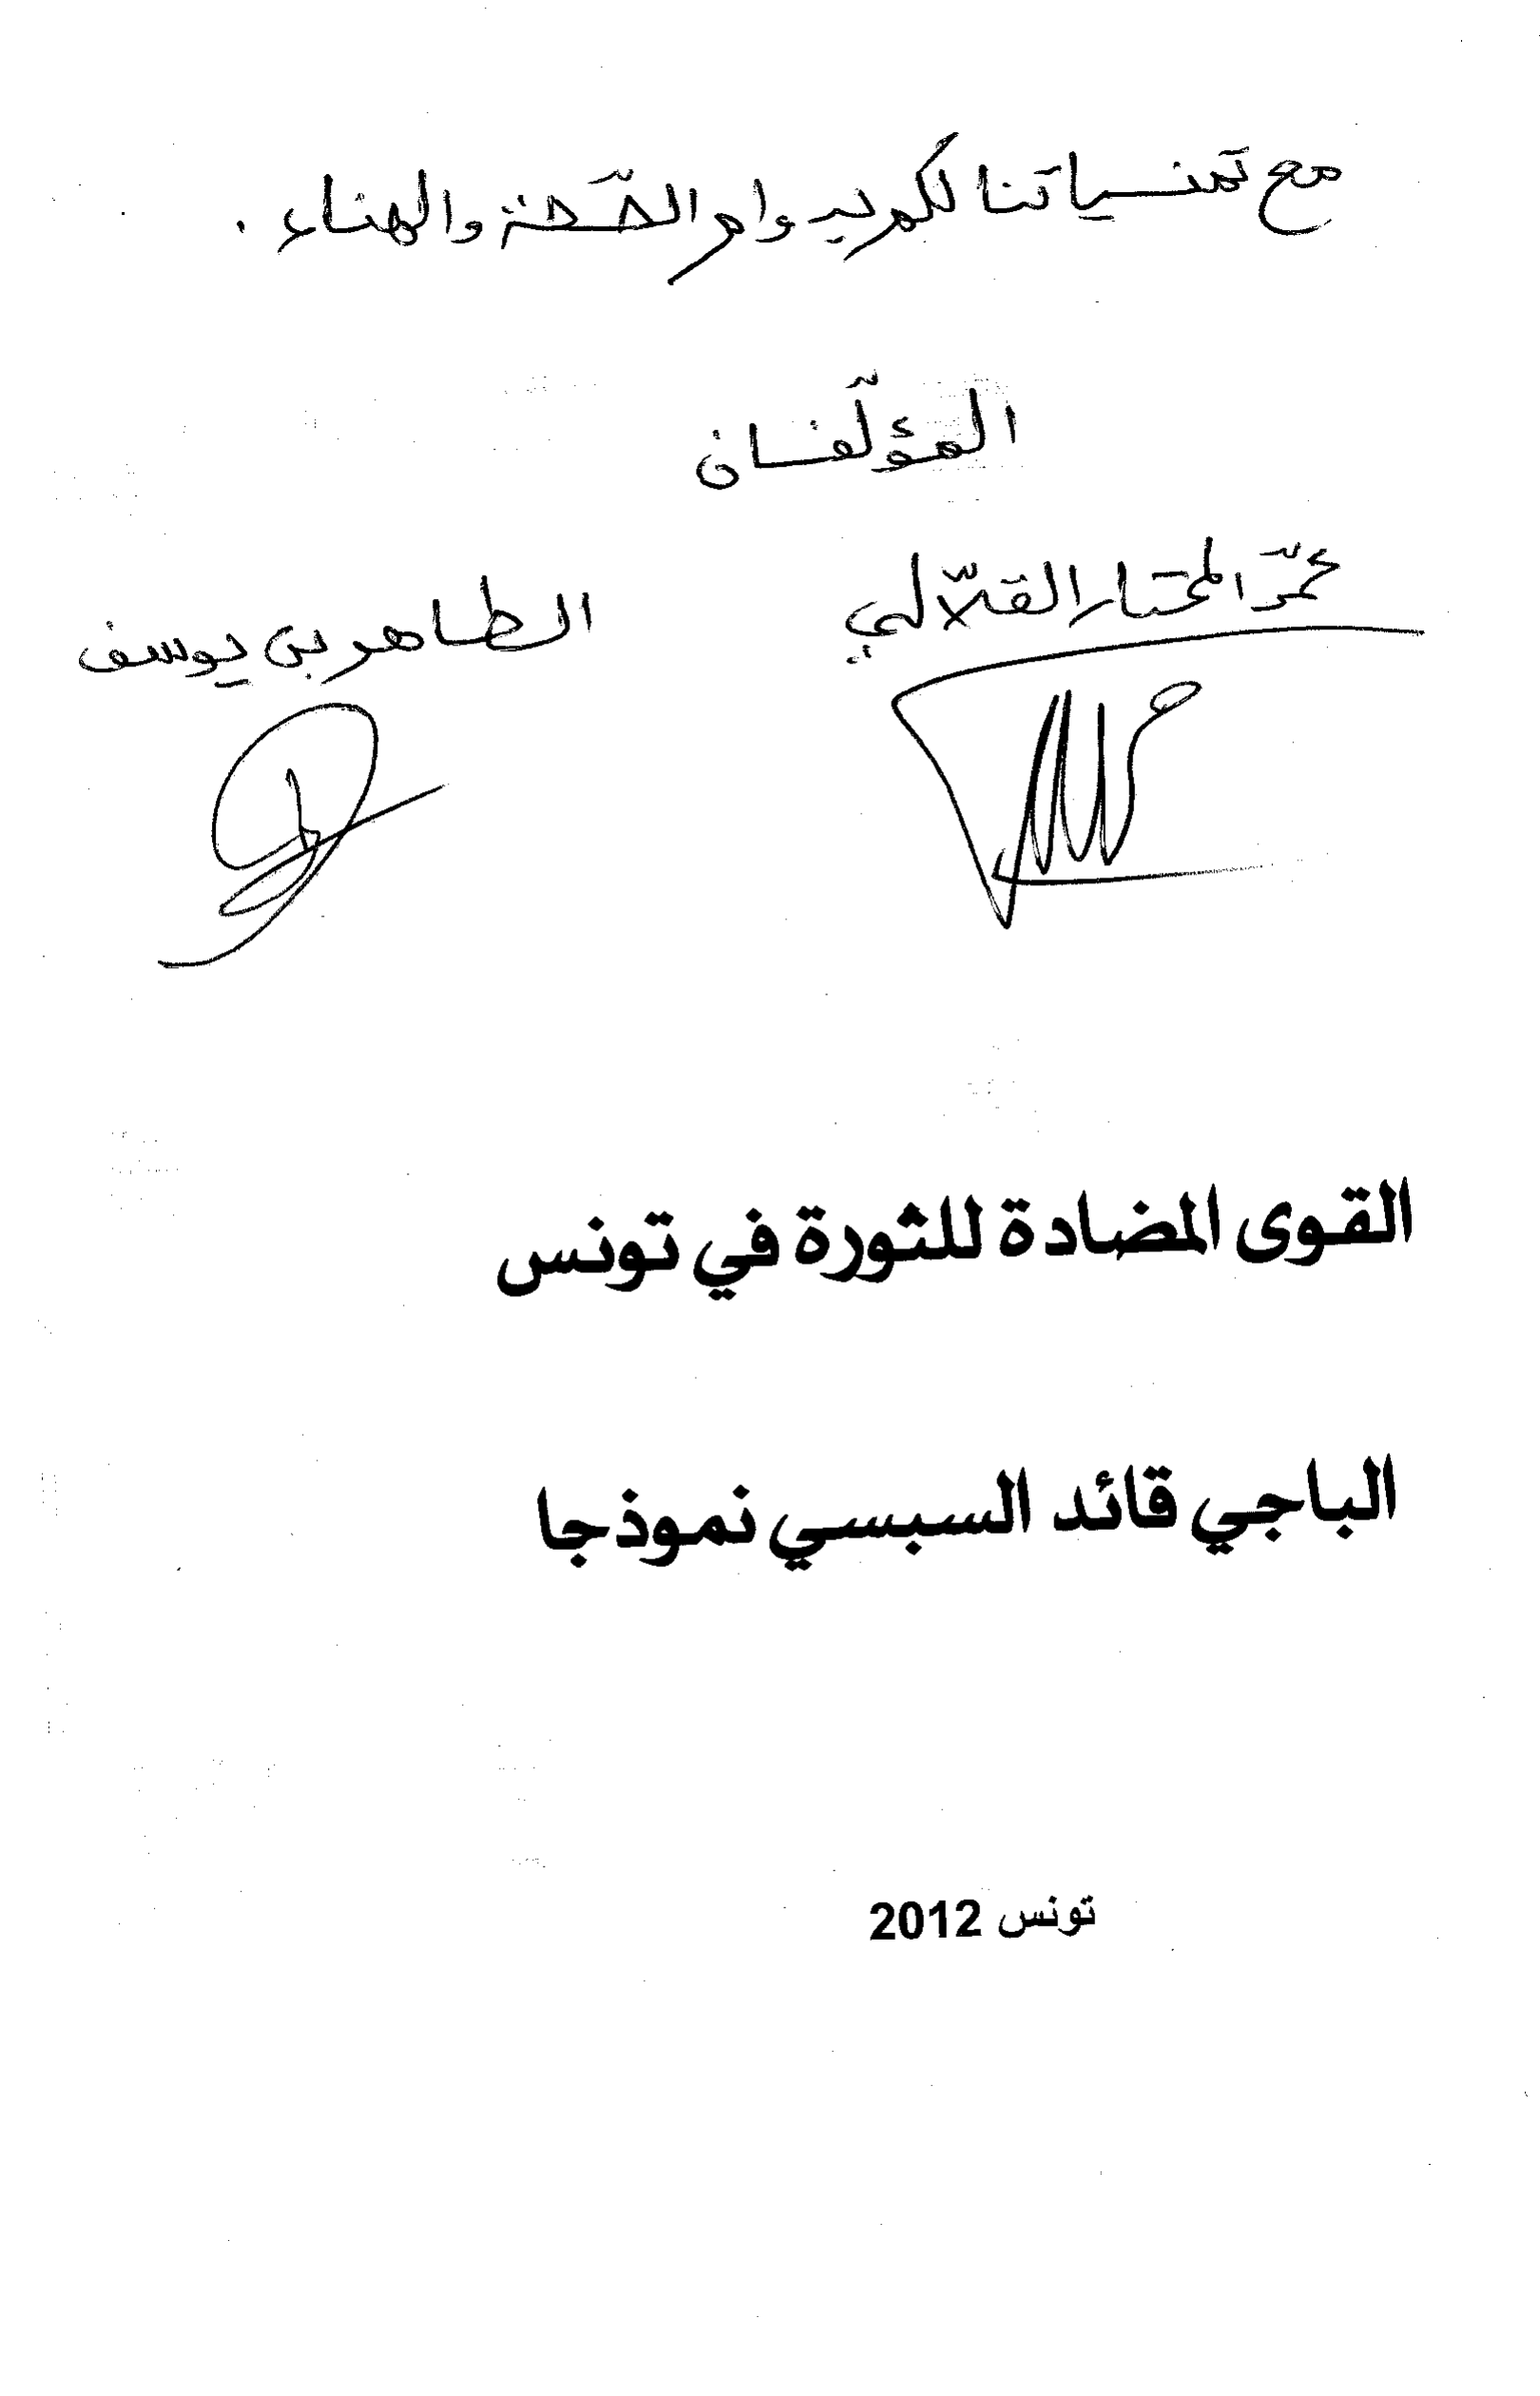 مع تمنياتنا لكم بدوام الصّحة والهناء.
المؤلّفان
محمّد المختار القلّالي
الطاهر بن يوسف
القوى المضادة للثورة في تونس
الباجي قائد السبسي نموذجا
تونس 2012